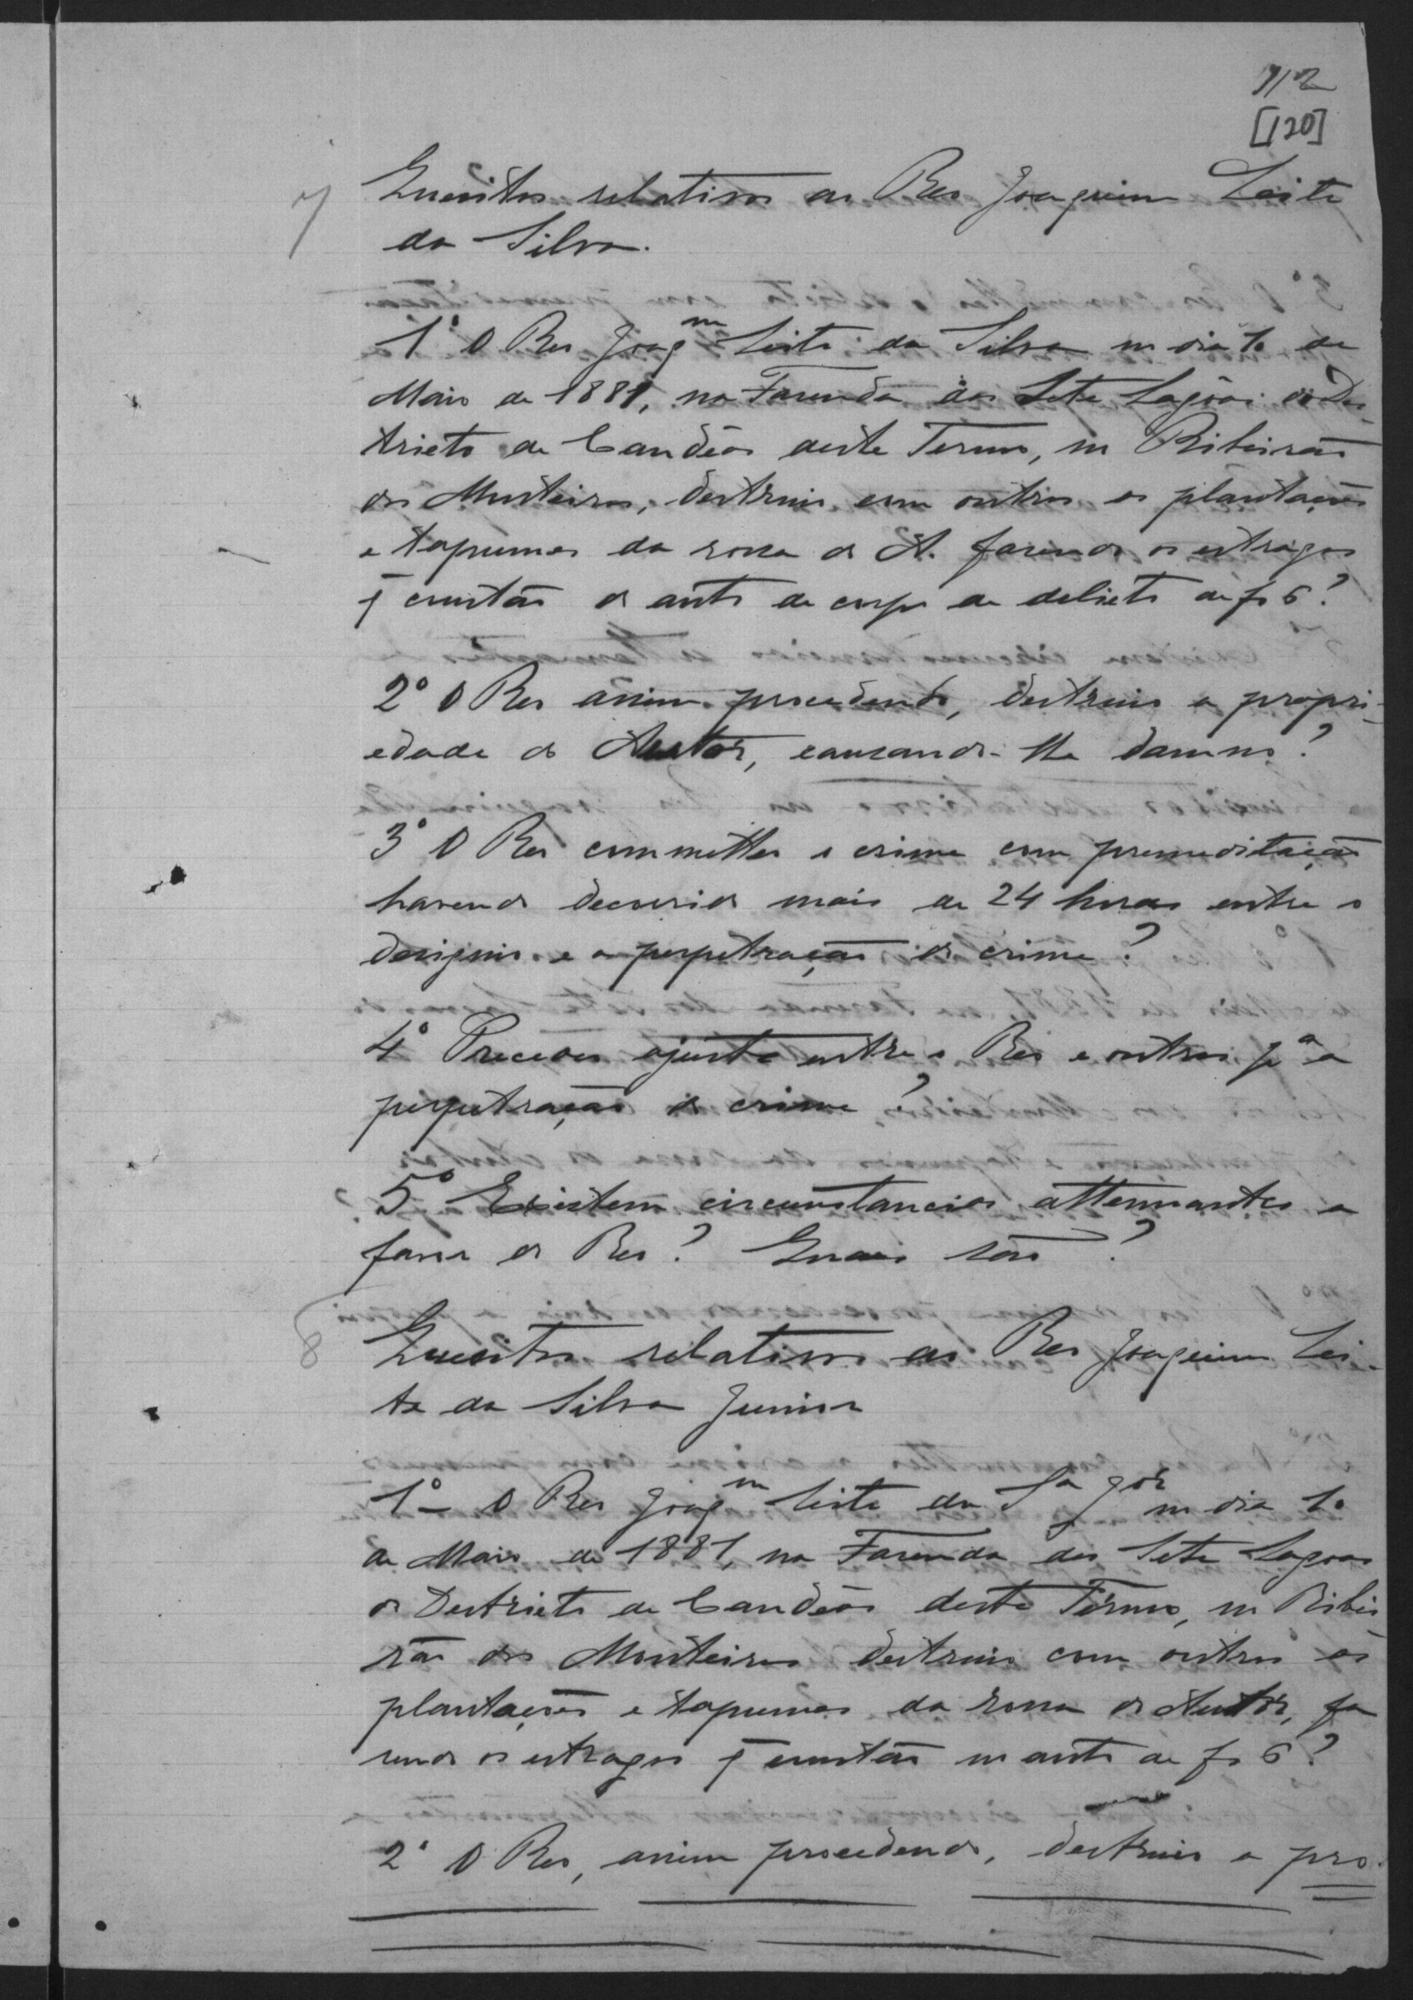 112
[120]
7 Quesitos relativos ao Reo Joaquim Leite
da Silva.
1º O Reo Joaqm Leite da Silva no dia 10 de
Maio de 1881, na Fazenda das Sete Lagôas do Des-
tricto de Candêas deste Termo, no Ribeirão
dos Monteiros, destruio com outros as plantações
e tapumes da rossa do A. fazendo os estragos
q̃ constão do auto de corpo de delicto de fs 6?
2º O Reo assim procedendo, destruio a propri-
edade do Autor, causando-lhe damno?
3º O Reo commetteo o crime com premeditação
havendo decorrido mais de 24 horas entre o
designio e a perpetração do crime?
4º Precedeo ajuste entre o Reo e outros pª a
perpetração do crime?
5º Existem circumstancias attenuantes a
favor do Reo? Quaes são?
8 Quesitos relativos ao Reo Joaquim Lei-
te da Silva Junior
1º O Reo Joaqm Leite da Sª Jor no dia 10
de Maio de 1881, na Fazenda das Sete Lagoas
do Destricto de Candêas deste Termo, no Ribei
rão dos Monteiros destruio com outros as
plantações e tapumes da rossa do Autor, fa
zendo os estragos q̃ constão no auto de fs 6?
2º O Reo, assim procedendo, destruio a pro-